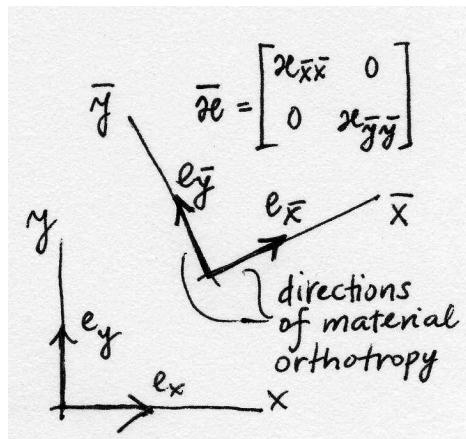 ȳ
ϰ̄ = [ϰx̄x̄ 0
0 ϰȳȳ]
eȳ
ex̄
x̄
y
directions
of material
orthotropy
ey
ex
x